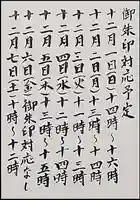 御朱印対応予定
十二月一日(日)十時〜十六時
十二月二日(月)十時〜十四時
十二月三日(火)十時〜
十二月四日(水)十時〜十四時
十二月五日(木)十三時〜十五時
十二月六日(金)御朱印対応なし
十二月七日(土)十時〜十二時